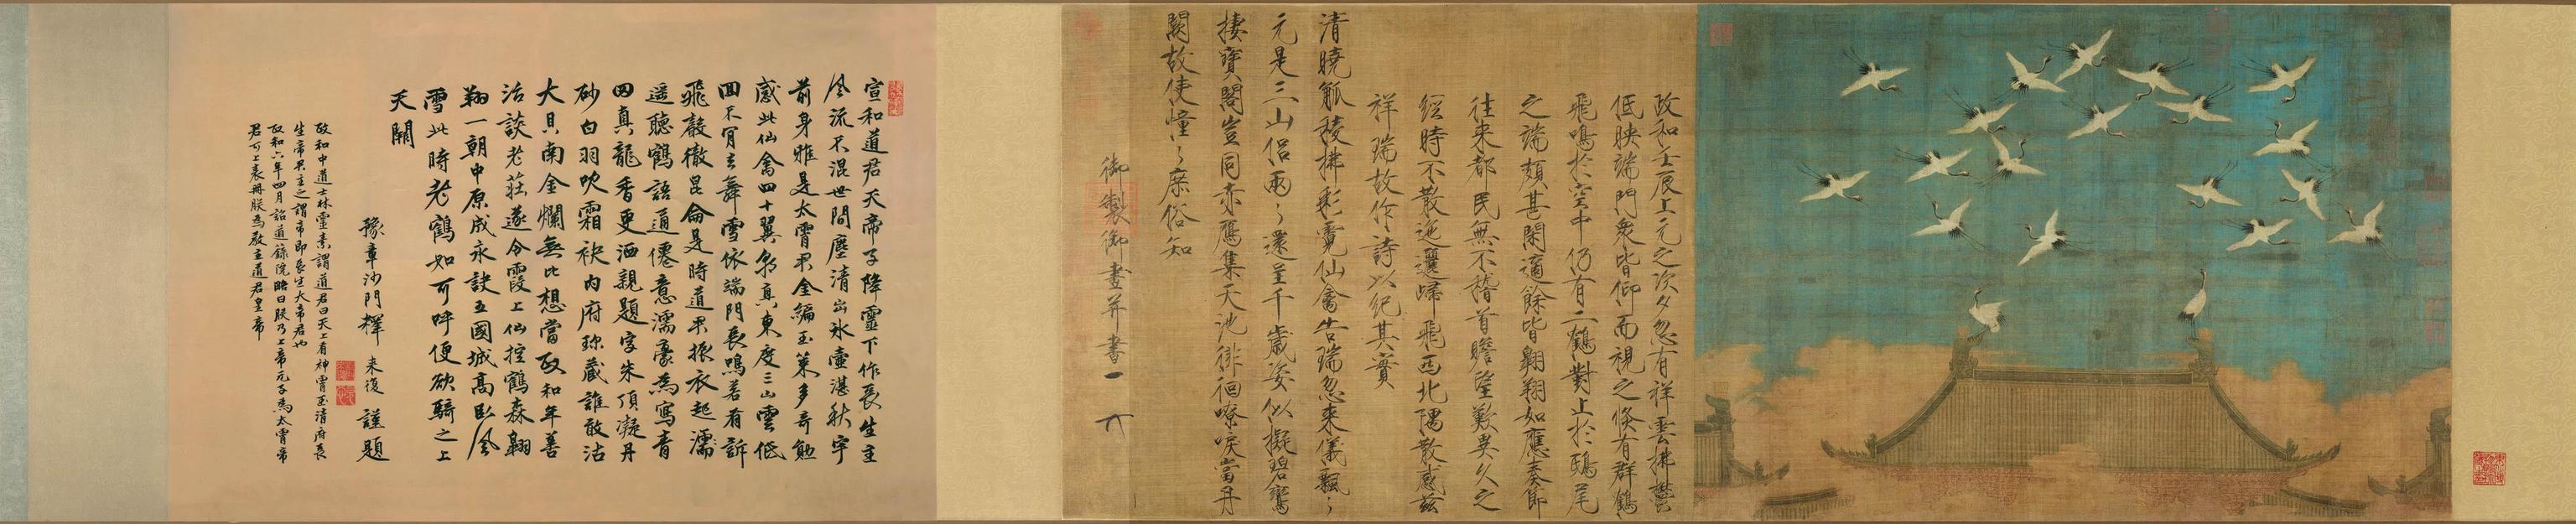 政和壬辰上元之次夕忽有祥雲拂鬱
低映端門衆皆仰而視之倏有群鶴
飛鳴於空中仍有二鶴對止於鴟尾
之端頗甚閑適餘皆翺翔如應奏節
往來都民無不稽首瞻望歎異久之
經時不散迤邐歸飛西北隅散感茲
祥瑞故作詩以紀其實
清曉觚稜拂彩霓仙禽告瑞忽來儀飄〻
元是三山侶兩〻還呈千歲姿似擬碧鸞
棲寶閣豈同赤鴈集天池徘徊嘹唳當丹
闕故使憧〻庶俗知
御製御畫并書
宣和道君天帝子降靈下作長生主
風流不混世間塵清出氷壺湛秋宇
前身雅是太霄君金編玉策多奇勛
感此仙禽四十翼朝真東度三山雲低
回不肯去舞雪依端門長鳴若有訴
飛聲徹昆侖是時道君振衣起濡
遥聽鶴語通僊意濡毫為寫青
田真龍香更洒親題字朱頂凝丹
砂白羽吹霜袂内府珎藏誰敢沽
大貝南金爛無比想當政和年善
活談老莊遂令霞上仙控鶴森翱
翔一朝中原成永訣五國城高臥風
雪此時老鶴如可呼便欲騎之上
天闕
豫章沙門釋来復謹題
政和中道士林靈素謂道君曰天上有神霄玉清府長
生帝君主之謂帝即長生大帝君也
政和六年四月詔道錄院略曰朕乃上帝元子為太霄帝
君可上表冊朕為教主道君皇帝